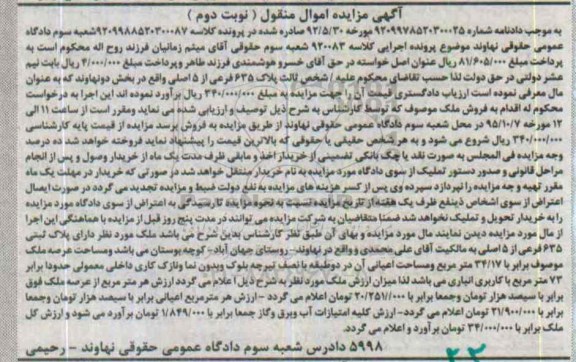 آگهی مزایده اموال منقول ( نوبت دوم )
به موجب دادنامه شماره ۹۲۰۹۹۷۸۵۲۰۳۰۰۰۲۵ مورخه ۹۲/۵/۳۰ صادره شده در پرونده کلاسه ۹۲۰۹۹۸۸۵۲۰۳۰۰۰۸۷شعبه سوم دادگاه
عمومی حقوقی نهاوند موضوع پرونده اجرایی کلاسه ۹۲۰۰۸۳ شعبه سوم حقوقی آقای میثم زمانیان فرزند روح اله محکوم است به
پرداخت مبلغ ۸۱/۶۰۵/۰۰۰ ریال عنوان اصل خواسته در حق آقای خسرو هوشمندی فرزند طاهر وپرداخت مبلغ ۴/۰۰۰/۰۰۰ ریال بابت نیم
عشر دولتی در حق دولت لذا حسب تقاضای محکوم علیه / شخص ثالث پلاک ۶۳۵ فرعی از ۵ اصلی واقع در بخش دونهاوند که به عنوان
مال معرفی نموده است ارزیاب دادگستری قیمت آن را جهت مزایده به مبلغ ۳۴۰/۰۰۰/۰۰۰ ریال برآورد نموده اند این اجرا به درخواست
محکوم له اقدام به فروش ملک موصوف که توسط کارشناس به شرح ذیل توصیف و ارزیابی شده می نماید ومقرر است از ساعت ۱۱ الی
۱۲ مورخه ۹۵/۱۰/۷ در محل شعبه سوم دادگاه عمومی حقوقی نهاوند از طریق مزایده به فروش برسد مزایده از قیمت پایه کارشناسی
۳۴۰/۰۰۰/۰۰۰ ریال شروع می شود و به هر شخص حقیقی یا حقوقی که بالاترین قیمت را پیشنهاد نماید فروخته خواهد شد ده درصد
وجه مزایده فی المجلس به صورت نقد یا چک بانکی تضمینی از خریدار اخذ و مابقی ظرف مدت یک ماه از خریدار وصول و پس از انجام
مراحل قانونی و صدور دستور تملیک از سوی دادگاه مورد مزایده به نام خریدار منتقل خواهد شد در صورتی که خریدار در مهلت یک ماه
مقرر تهیه وجه مزایده را نپردازد سپرده وی پس از کسر هزینه های مزایده به نفع دولت ضبط و مزایده تجدید می گردد در صورت ایصال
اعتراض از سوی اشخاص ذینفع ظرف یک هفته از تاریخ مزایده نسبت به نحوه مزایده تا رسیدگی به اعتراض از سوی دادگاه مورد مزایده
را به خریدار تحویل و تملیک نخواهد شد ضمنا متقاضیان به شرکت مزایده می توانند در مدت پنج روز قبل از مزایده با هماهنگی این اجرا
از مال مورد مزایده دیدن نمایند مال مورد مزایده و بهای آن طبق نظر کارشناس بدین شرح می باشد ملک مورد نظر دارای پلاک ثبتی
۶۳۵ فرعی از ۵ اصلی به مالکیت آقای علی محمدی و واقع در نهاوند- روستای جهان آباد- کوچه بوستان می باشد ومساحت عرصه ملک
موصوف برابر با ۳۴/۱۷ متر مربع ومساحت اعیانی آن در دوطبقه با نصف تیرچه بلوک وبدون نما ونازک کاری داخلی معمولی حدودا برابر
۷۳ متر مربع با کاربری انباری می باشد لذا میزان ارزش ملک مورد نظر به شرح ذیل اعلام می گردد ارزش هر متر مربع از عرصه ملک فوق
برابر با سیصد هزار تومان وجمعا برابر با ۲۰/۲۵۱/۰۰۰ تومان اعلام می گردد - ارزش هر مترمربع اعیانی برابر با سیصد هزار تومان وجمعا
برابر با ۲۱/۹۰۰/۰۰۰ تومان اعلام می گردد- ارزش کلیه امتیازات آب وبرق وگاز جمعا برابر با ۱/۸۴۹/۰۰۰ تومان برآورد می شود و ارزش کل
ملک برابر با ۳۴/۰۰۰/۰۰۰ تومان برآورد و اعلام می گردد.
۵۹۹۸ دادرس شعبه سوم دادگاه عمومی حقوقی نهاوند - رحیمی